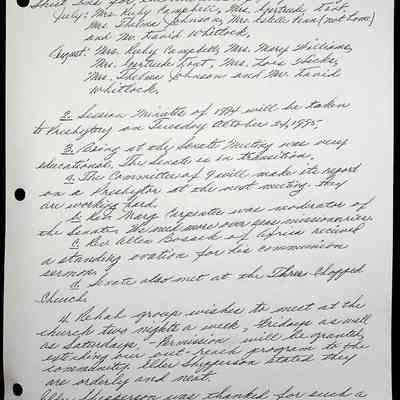 July: Mrs. Ruby Campbell, Mrs. Gertrude Tont,
Mrs. Thelma Johnson, Mrs. Estelle (not home)
and Mr. David Whitlock.
August: Mrs. Ruby Campbell, Mrs. Mary Williams,
Mrs. Gertrude Tont, Mrs. Lois Hicks,
Mrs. Thelma Johnson and Mr. David
Whitlock.
2. Session Minutes of 1994 will be taken
to Presbytery on Tuesday October 24, 1995.
3. Being at the Senate Meeting was very
educational. The Senate is in transition.
a. The Committee of 9 will make its report
on a Presbytor at the next meeting they
are working hard.
b. Rev. Mary Carpenter was moderator of
the Senate. We need more over seas missionaries.
c. Rev. Allen Bosack of Africa received
a standing ovation for his communion
sermon.
d. Senate also met at the Three Chopped
Church.
4. Rehab group wishes to meet at the
church two nights a week, Fridays as well
as Saturdays. - Permission will be granted,
extending our out-reach program to the
community. Elder Shepperson stated they
are orderly and neat.
Elder Shepperson was thanked for such a